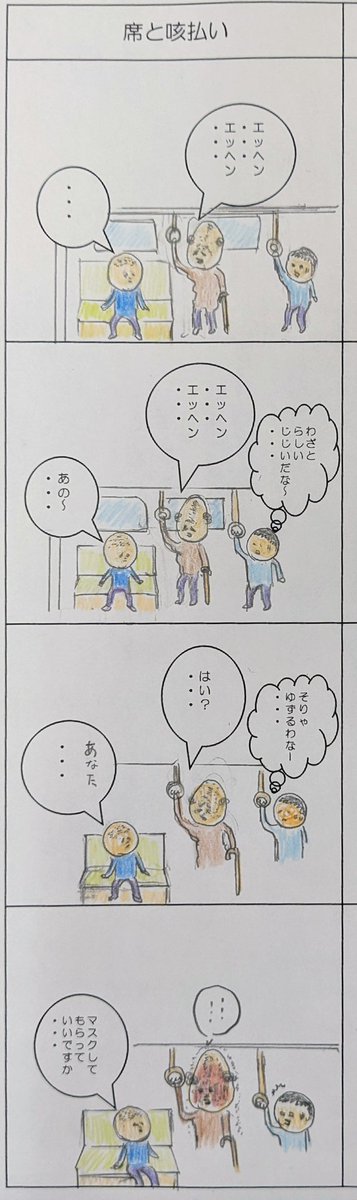 席と咳払い
エッヘン
・・・
エッヘン
・・・
・・・
わざと
らしい
じじいだな〜
・・・
エッヘン
・・・
エッヘン
・・・
あの〜
・・・
そりゃ
ゆずるわなー
・・・
はい?
・・・
あなた
・・・
!!!
マスクして
もらって
いいですか
・・・